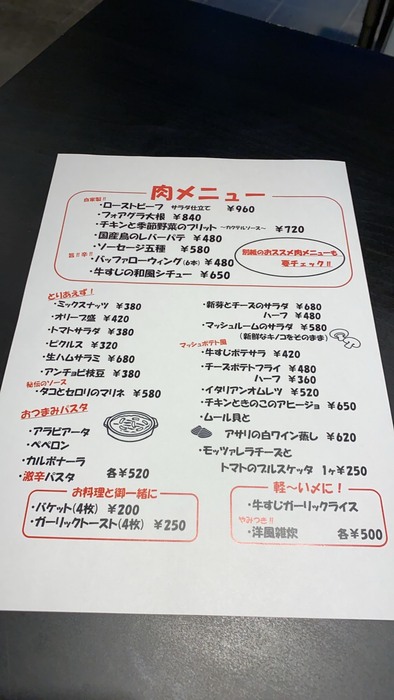 肉メニュー
自家製!!
・ローストビーフ サラダ仕立て ¥960
・フォアグラ大根 ¥840
・チキンと季節野菜のフリット ～カクテルソース～ ¥720
・国産鳥のレバーパテ ¥480
・ソーセージ五種 ¥580
旨!!辛!!
・バッファローウィング(6本) ¥480
・牛すじの和風シチュー ¥650
別紙のおススメ肉メニューも
要チェック!!
とりあえず!
・ミックスナッツ ¥380
・オリーブ盛 ¥420
・トマトサラダ ¥380
・ピクルス ¥320
・生ハムサラミ ¥680
・アンチョビ枝豆 ¥380
秘伝のソース
・タコとセロリのマリネ ¥580
おつまみパスタ
・アラビアータ
・ペペロン
・カルボナーラ
・激辛パスタ 各¥520
・新芽とチーズのサラダ ¥680
ハーフ ¥480
・マッシュルームのサラダ ¥580
(新鮮なキノコをそのまま)
マッシュポテト風
・牛すじポテサラ ¥420
・チーズポテトフライ ¥480
ハーフ ¥360
・イタリアンオムレツ ¥520
・チキンときのこのアヒージョ ¥650
・ムール貝と
アサリの白ワイン蒸し ¥620
・モッツァレラチーズと
トマトのブルスケッタ 1ヶ¥250
お料理と御一緒に
・バケット(4枚) ¥200
・ガーリックトースト(4枚) ¥250
軽～い〆に!
・牛すじガーリックライス
やみつき!!
・洋風雑炊 各¥500